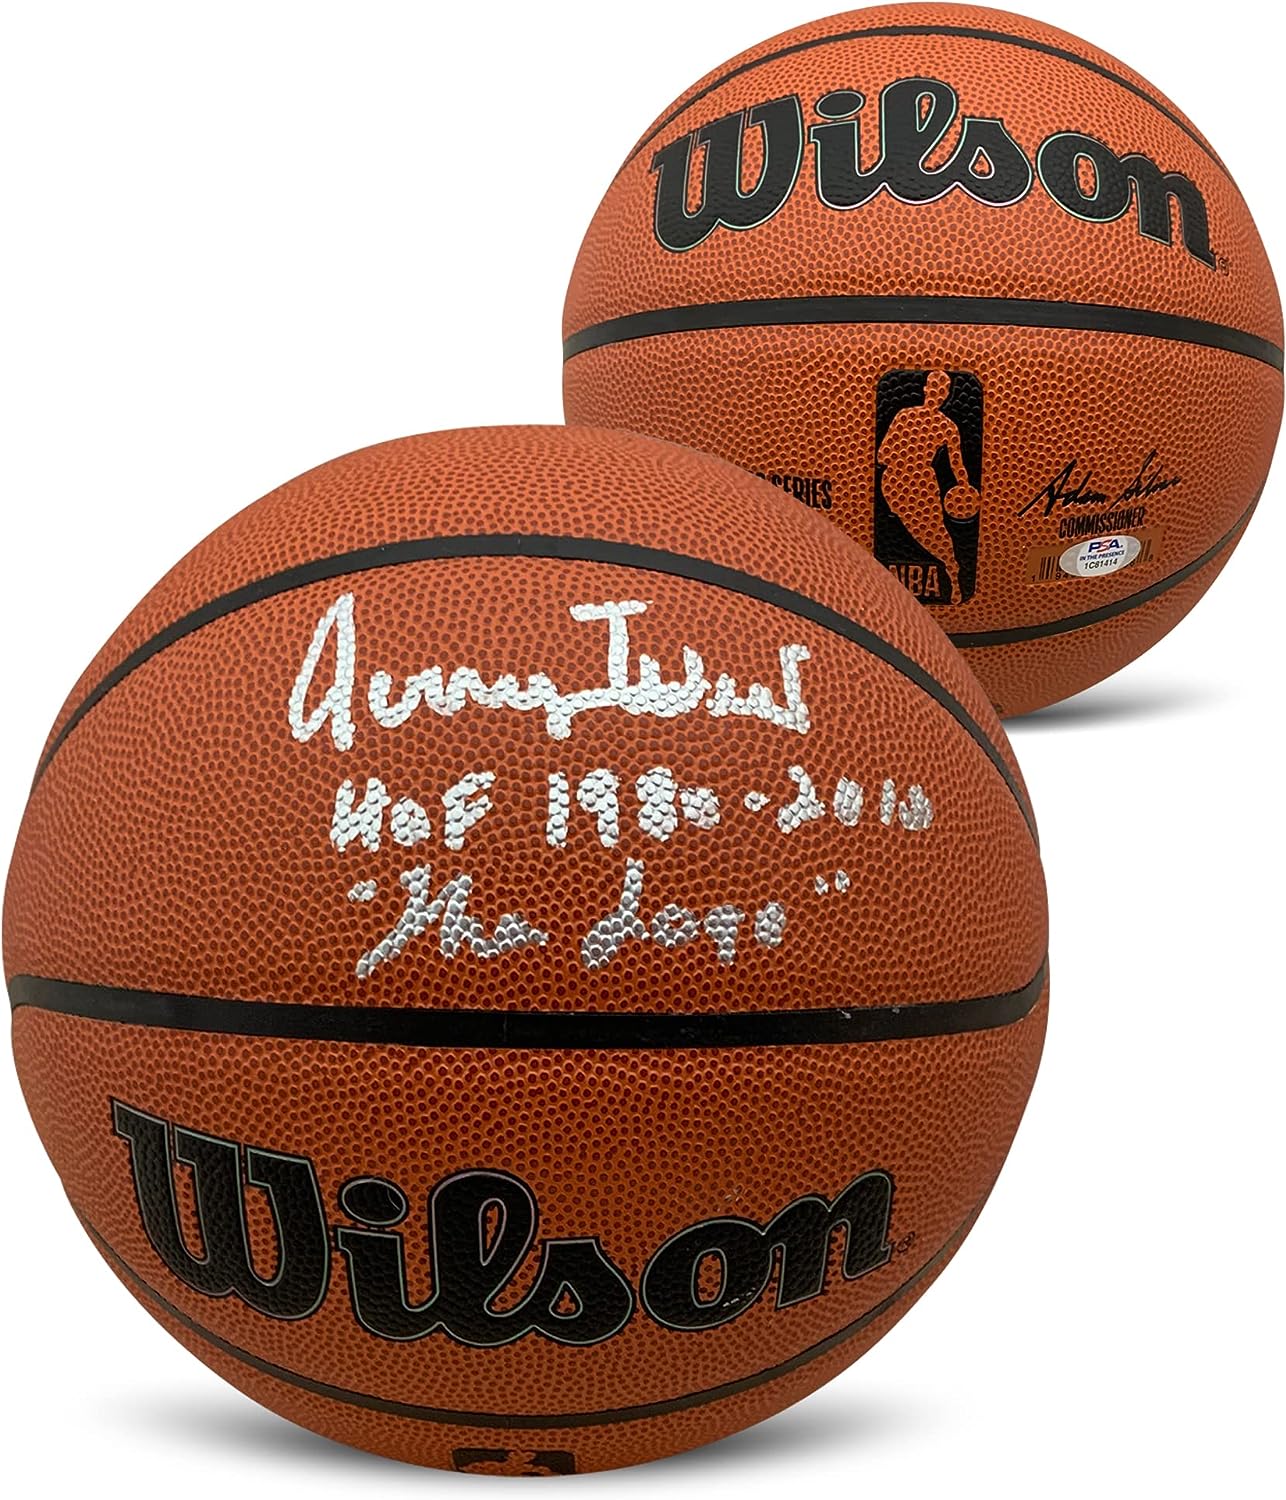 Wilson®
SERIES
Adam Silver
COMMISSIONER
PSA
IN THE PRESENCE
1C81414
NBA
Jerry West
HOF 1980-2010
"The Logo"
Wilson®